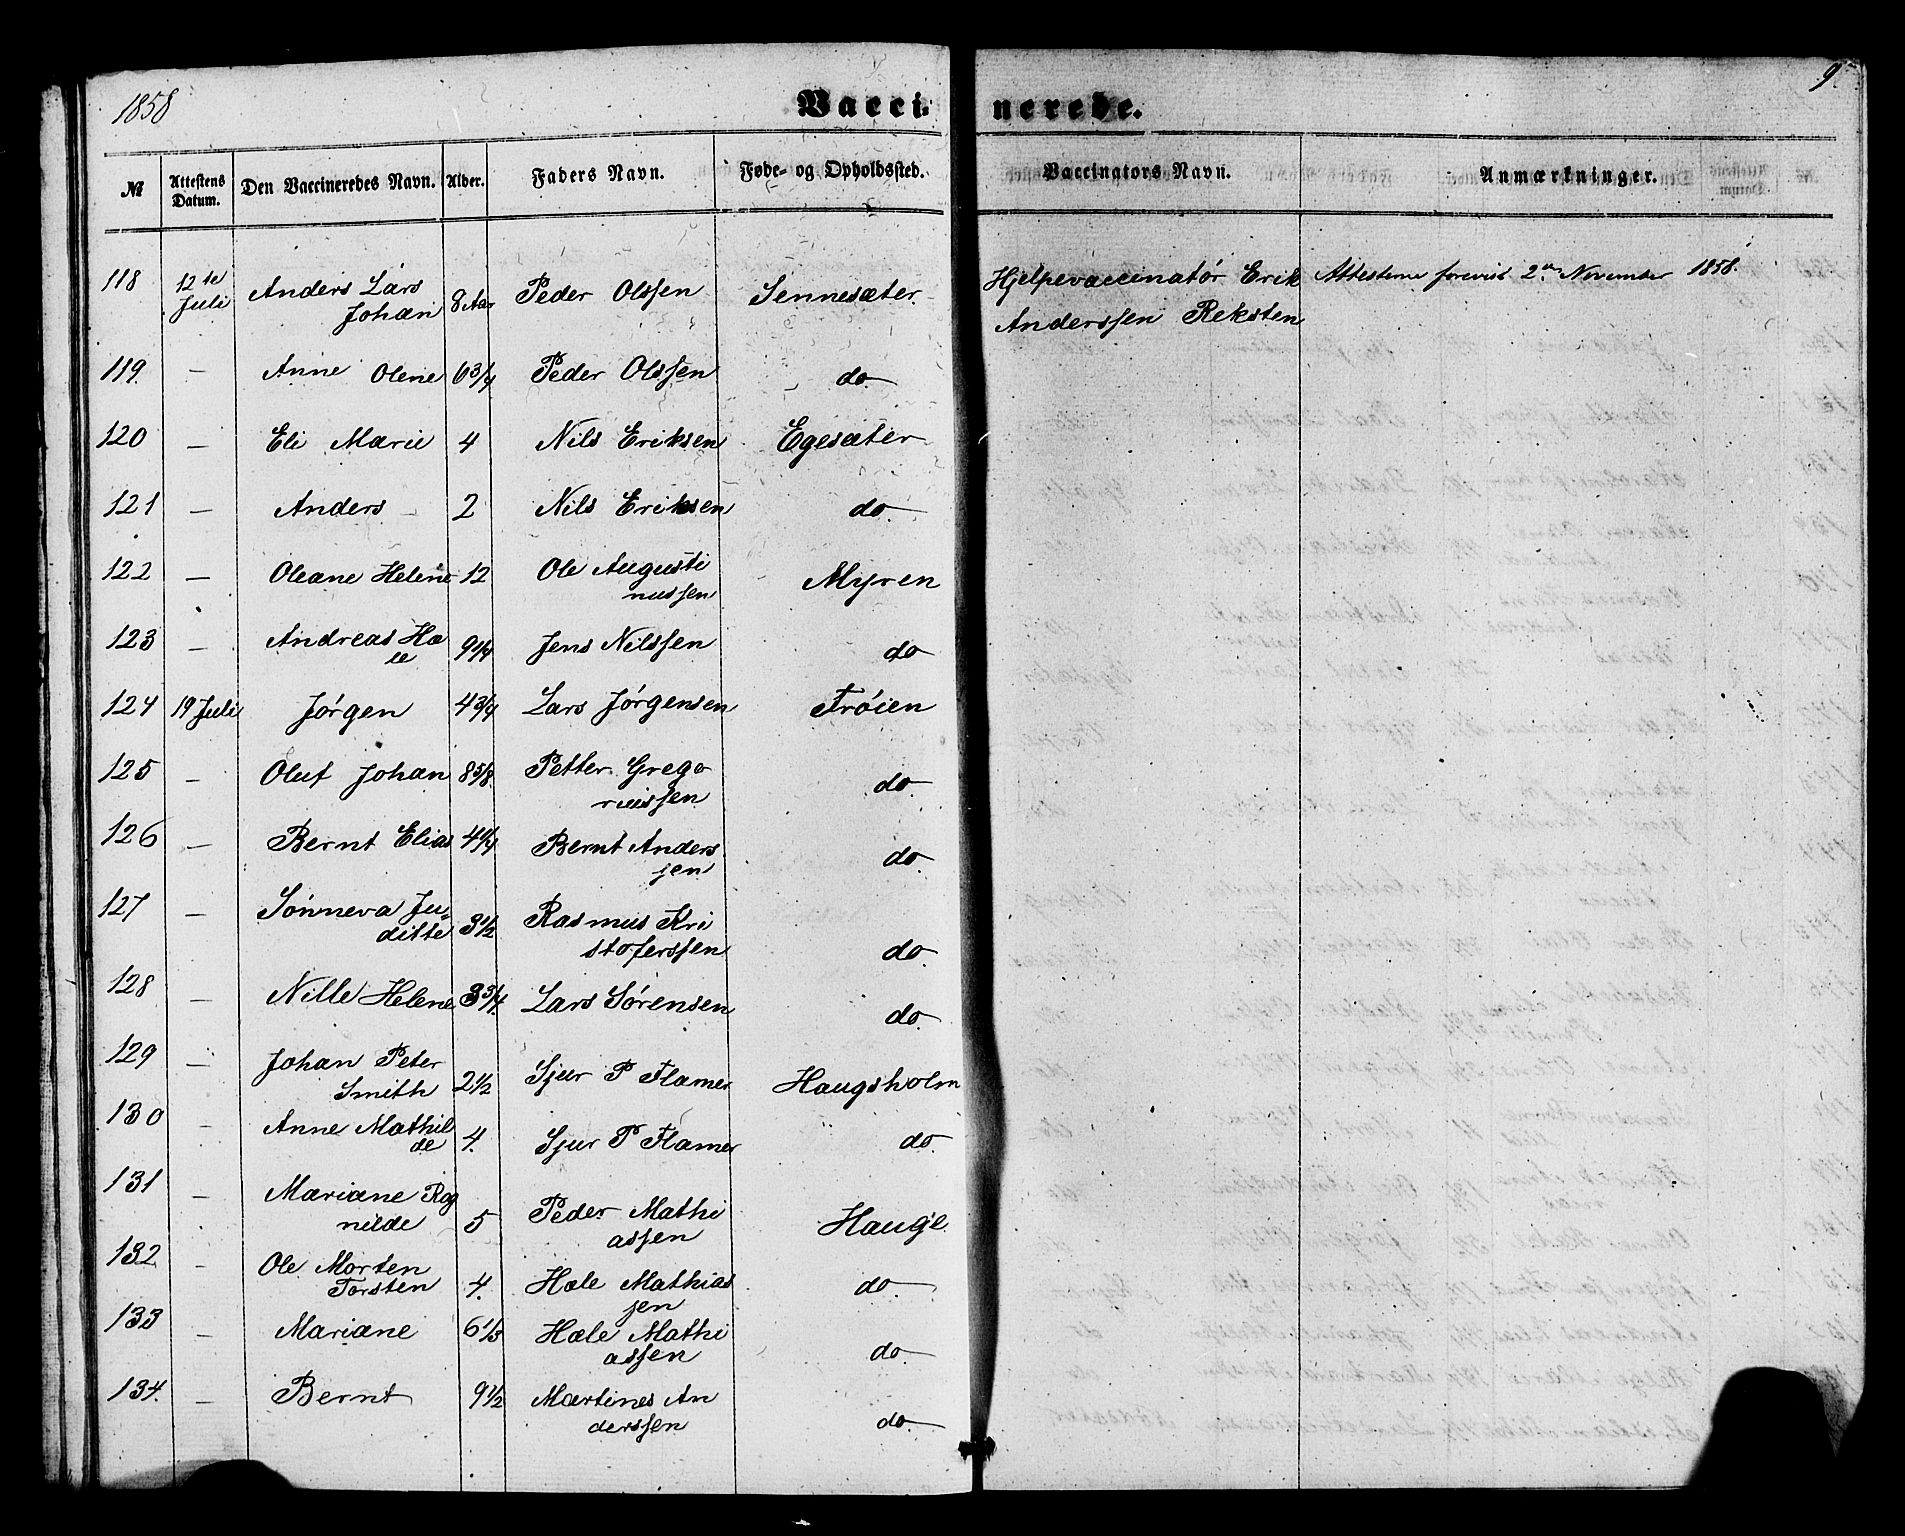 1858
Vaccinerede.
9
№ Attestens Datum. Den Vaccineredes Navn. Alder. Faders Navn. Føde- og Opholdssted. Vaccinators Navn. Anmærkninger.
118 12te Juli Anders Lars Johan 8 Aar Peder Olssen Sennesæter Hjelpevaccinatór Erik Anderssen Reksten Attesterne forevist 2den November 1858.
119. — Anne Olene 6 3/4 Peder Olssen do
120 — Eli Marie 4 Nils Eriksen Egesæter
121 — Anders 2 Nils Eriksen do.
122 — Oleane Helene 12 Ole Augustinussen Myren
123 — Andreas Hæle 9 1/4 Jens Nilssen do
124 19 Juli Jórgen 4 3/4 Lars Jórgensen Tróien
125 — Oluf Johan 8 5/8 Petter Gregoriussen do.
126 — Bernt Elias 4 1/4 Bernt Anderssen do.
127 — Sónneva Juditte 3 1/2 Rasmus Kristoferssen do.
128 — Nille Helene 3 3/4. Lars Sórensen do.
129 — Johan Peter Smith 2 1/2 Sjur P Flamer Haugsholm
130 — Anne Mathilde 4. Sjur P Flamer do.
131 — Mariane Ragnilde 5 Peder Mathiassen Hauge
132 — Ole Morten Torsten 4. Hæle Mathiassen do.
133 — Mariane 6 1/3 Hæle Mathiassen do.
134. — Bernt 9 1/2 Martines Anderssen do.